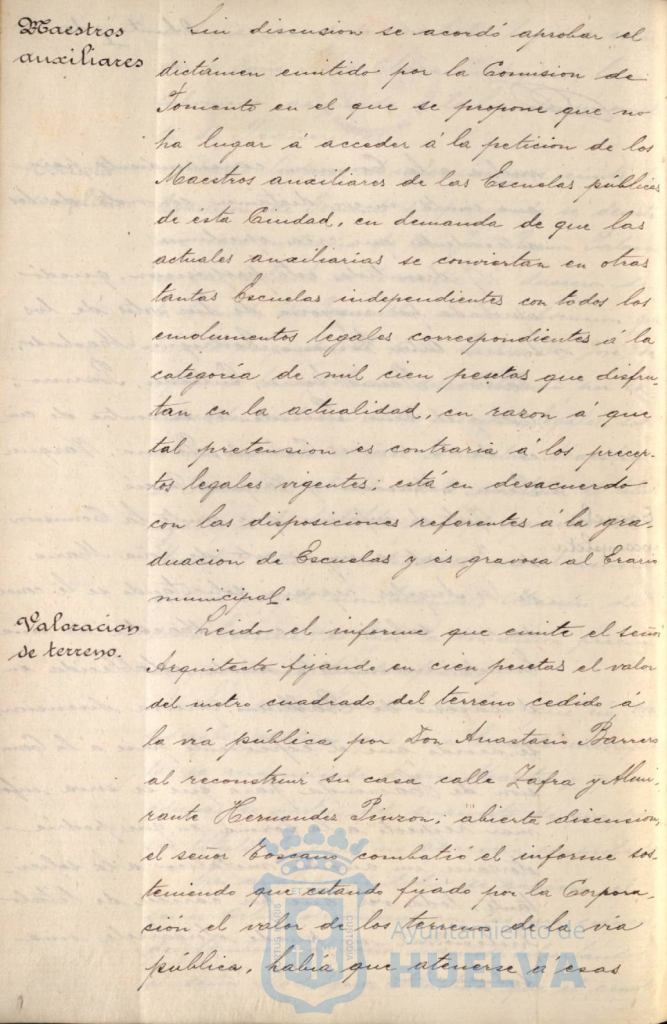 Maestros
auxiliares
Sin discusion se acordó aprobar el
dictámen emitido por la Comision de
Fomento en el que se propone que no
ha lugar á acceder á la peticion de los
Maestros auxiliares de las Escuelas públicas
de ésta Ciudad, en demanda de que las
actuales auxiliarias se conviertan en otras
tantas Escuelas independientes con todos los
emolumentos legales correspondientes á la
categoría de mil cien pesetas que disfru-
tan en la actualidad, en razon á que
tal pretension es contraria á los precep-
tos legales vigentes; está en desacuerdo
con las disposiciones referentes á la gra-
duacion de Escuelas y es gravosa al Erario
municipal.
Valoracion
de terreno.
Leido el informe que emite el señor
Arquitecto fijando en cien pesetas el valor
del metro cuadrado del terreno cedido á
la vía pública por Don Anastasio Barrero
al reconstruir su casa calle Zafra y Almi-
rante Hernandez Pinzon; abierta discusion,
el señor Toscano combatió el informe sos-
teniendo que estando fijado por la Corpora-
sión el valor de los terrenos de la vía
pública, había que atenerse á esas
Ayuntamiento de
HUELVA